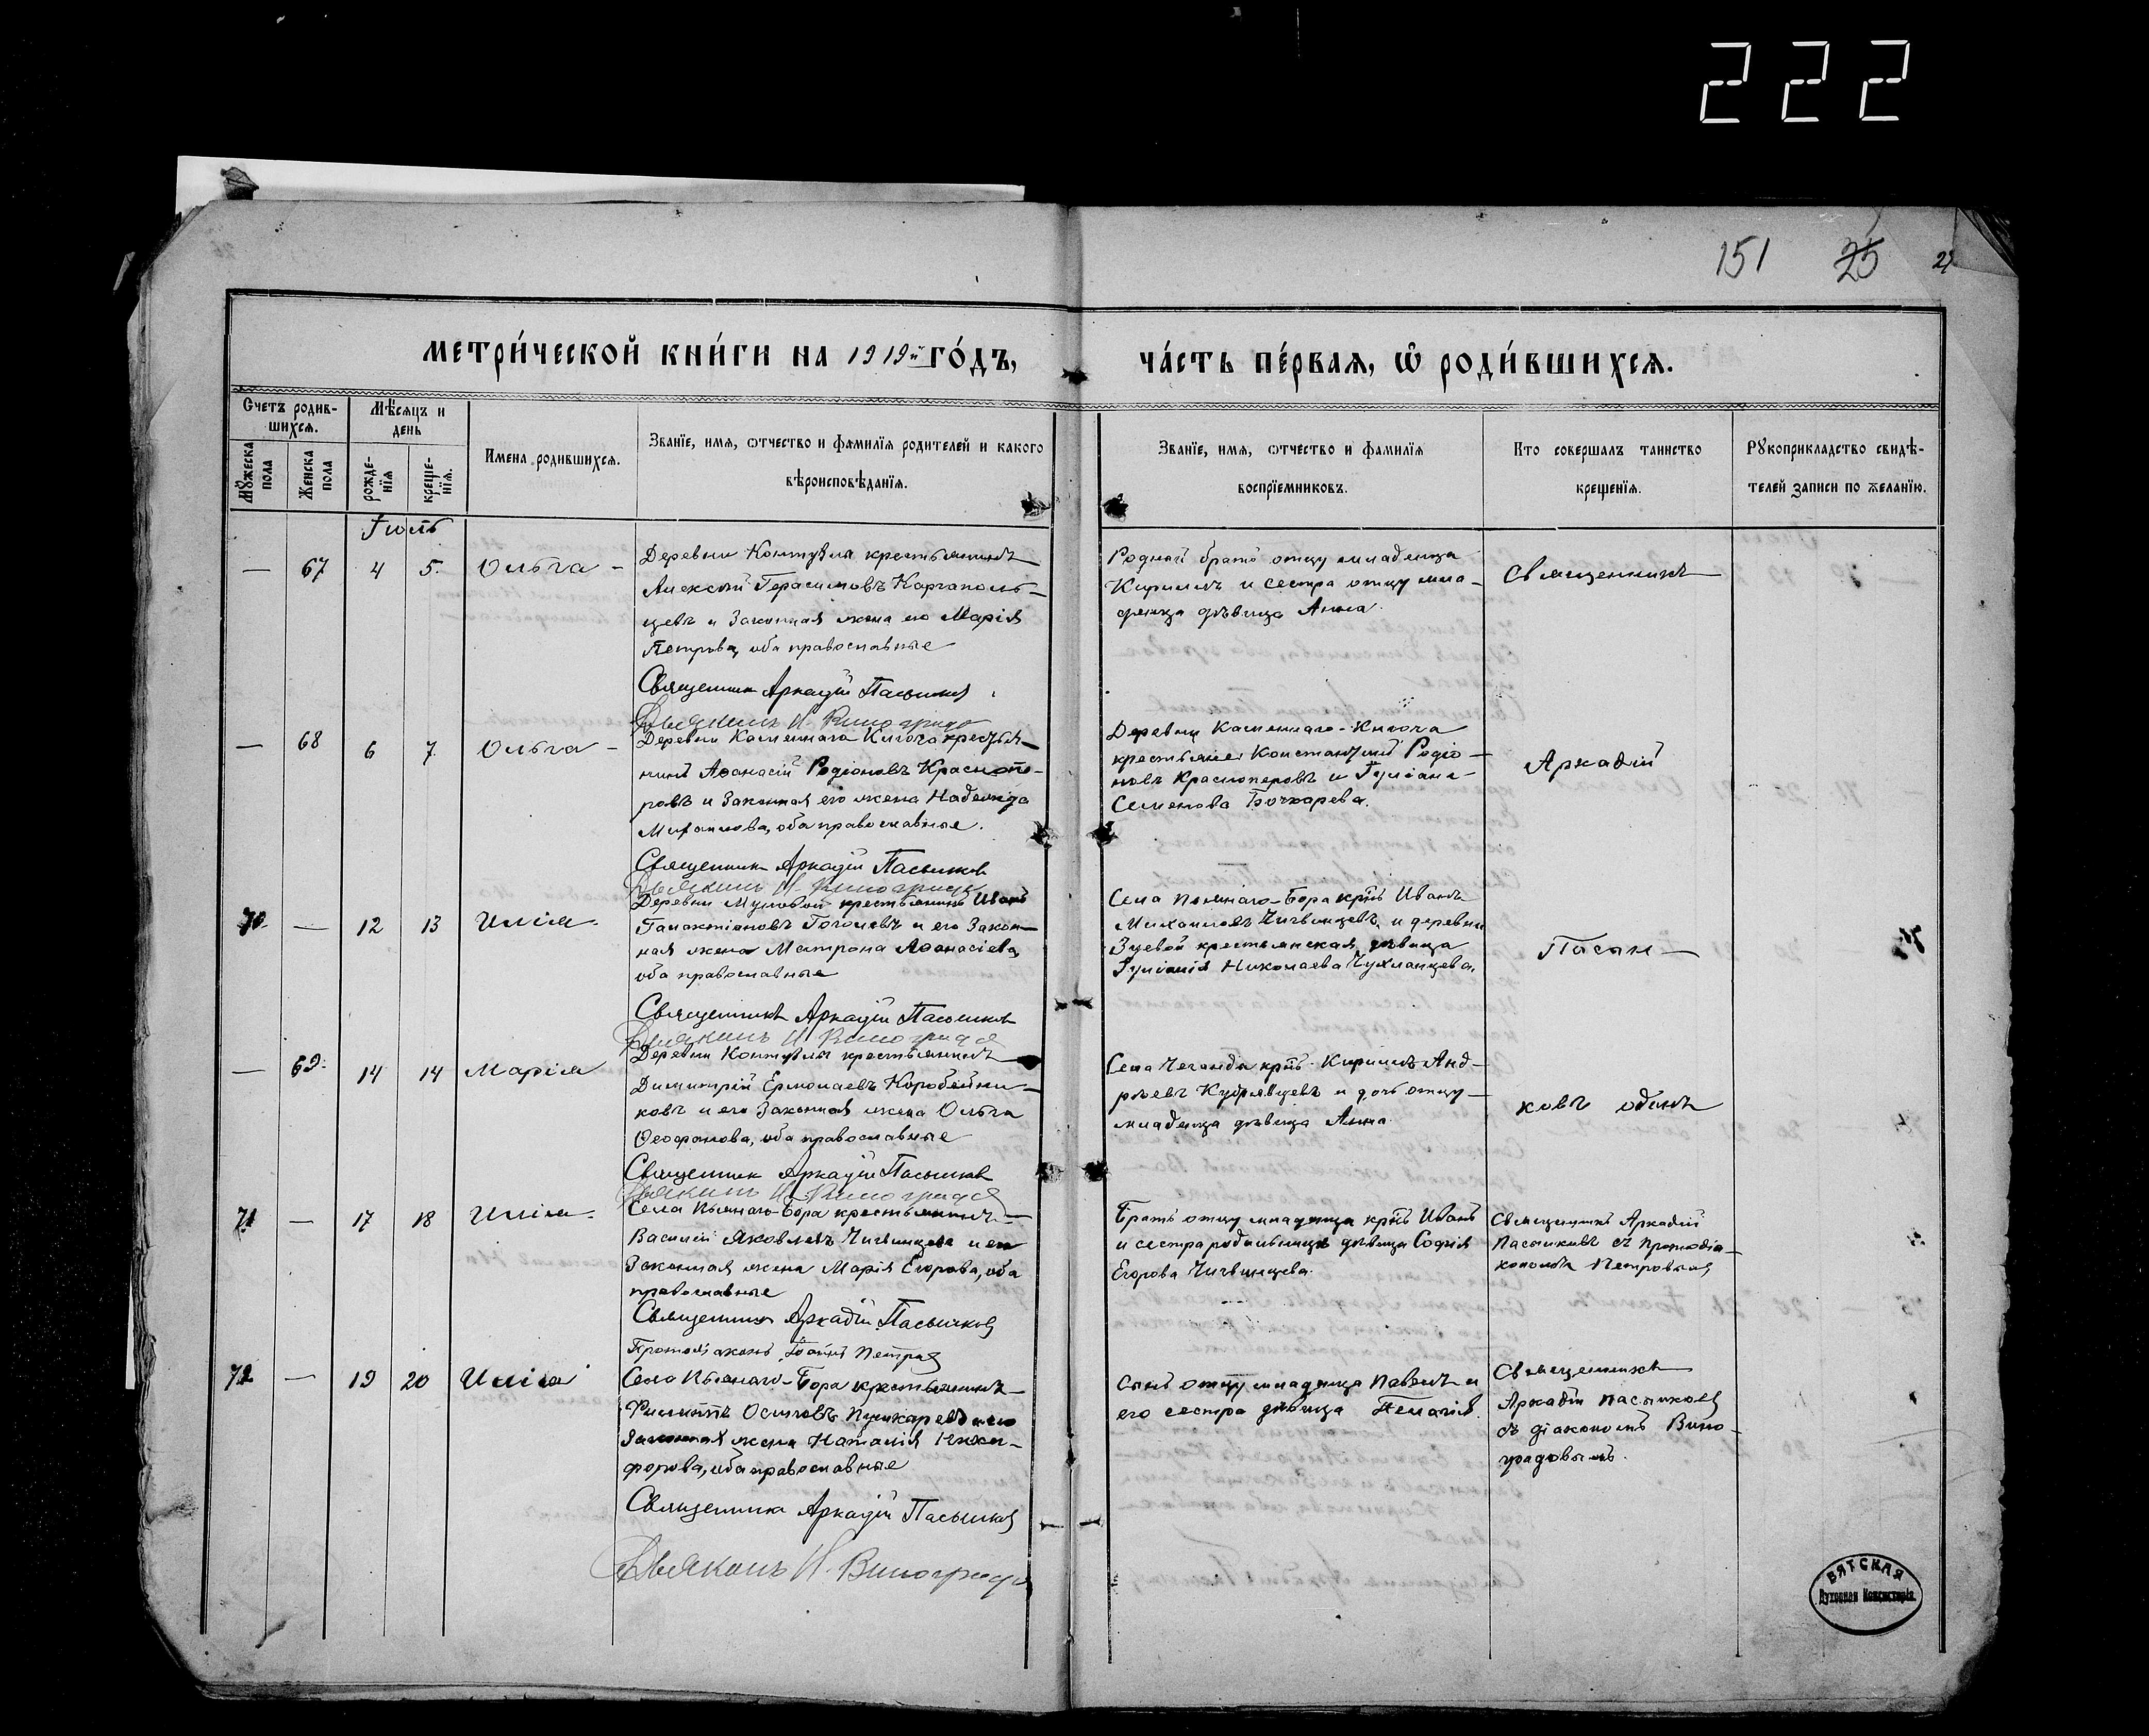 222
151 25
метри́ческой кни́ги на 1919й го́дъ,
ча́сть пе́рвая, ѡ҆ роди́вшихсѧ.
Счетъ родив-
шихсѧ.
Мѣсѧцъ и
день
Мꙋжеска
пола
Женска
пола
рожде-
нїѧ
креще-
нїѧ.
Имена родившихсѧ.
Званїе, имѧ, ѿчество и фамилїѧ родителей и какого
вѣроисповѣданїѧ.
Званїе, имѧ, ѿчество и фамилїѧ
воспрїемниковъ.
Кто совершалъ таинство
крещенїѧ.
Рꙋкоприкладство свидѣ-
телей записи по желанїю.
Іюль
— 67 4 5. Ольга —
Деревни Контузлы крестьянинъ
Алексѣй Герасимовъ Каргаполь-
цевъ и законная жена его Марія
Петрова, оба православные
Священник Аркадій Пасынков
Дьяконъ И. Виноградов
Родной братъ отцу младенца
Кириллъ и сестра отцу мла-
денца дѣвица Анна.
Священникъ
— 68 6 7 Ольга —
Деревни Каменнаго Ключа крестья-
нинъ Аѳанасій Родіоновъ Краснопе-
ровъ и законная его жена Надежда
Михаилова, оба православные.
Священник Аркадій Пасынков
Дьяконъ И. Виноградов
Деревни Каменнаго-Ключа
крестьяне Константинъ Родіо-
новъ Красноперовъ и Іуліанія
Семенова Бочкарева.
Аркадій
70. — 12 13 Илія.
Деревни крестьянинъ Иванъ
Галактіоновъ Гоголевъ и его закон-
ная жена Матрона Аѳанасіева,
оба православные
Священникъ Аркадій Пасынков
Дьяконъ И. Виноградов
Села Пьянаго-Бора крнъ Иванъ
Михаиловъ Чигвинцевъ и деревни
Зуевой крестьянская дѣвица
Іуліанія Николаева Чухланцева.
Пасын—
— 69. 14 14 Марія
Деревни Контузлы крестьянинъ
Димитрій Ермолаевъ Коробейни-
ковъ и его законная жена Ольга
Ѳеофанова, оба православные
Священник Аркадій Пасынков
Дьяконъ И. Виноградов
Села Чеганда крнъ Кириллъ Анд-
реевъ Кудрявцевъ и дочь отцу
младенца дѣвица Анна.
ковъ одинъ
71 — 17 18 Илія.
Села Пьянаго-Бора крестьянинъ
Василій Яковлевъ Чигвинцевъ и его
законная жена Марія Егорова, оба
православные
Священник Аркадій Пасынков
Протодіаконъ Іоаннъ Петров
Братъ отцу младенца крнъ Иванъ
и сестра родильницы дѣвица Софія
Егорова Чигвинцева.
Священникъ Аркадій
Пасынковъ съ протодіа-
кономъ Петровымъ
72 — 19 20 Илія
Села Пьянаго-Бора крестьянинъ
Филиппъ Осиповъ Пушкаревъ и его
законная жена Наталія Ники-
форова, оба православные
Священник Аркадій Пасынков
Дьяконъ И. Виноградов
Сынъ отцу младенца Павелъ и
его сестра дѣвица Пелагія.
Священникъ
Аркадій Пасынковъ
съ діакономъ Вино-
градовымъ.
ВЯТСКАЯ
Духовная Консисторія